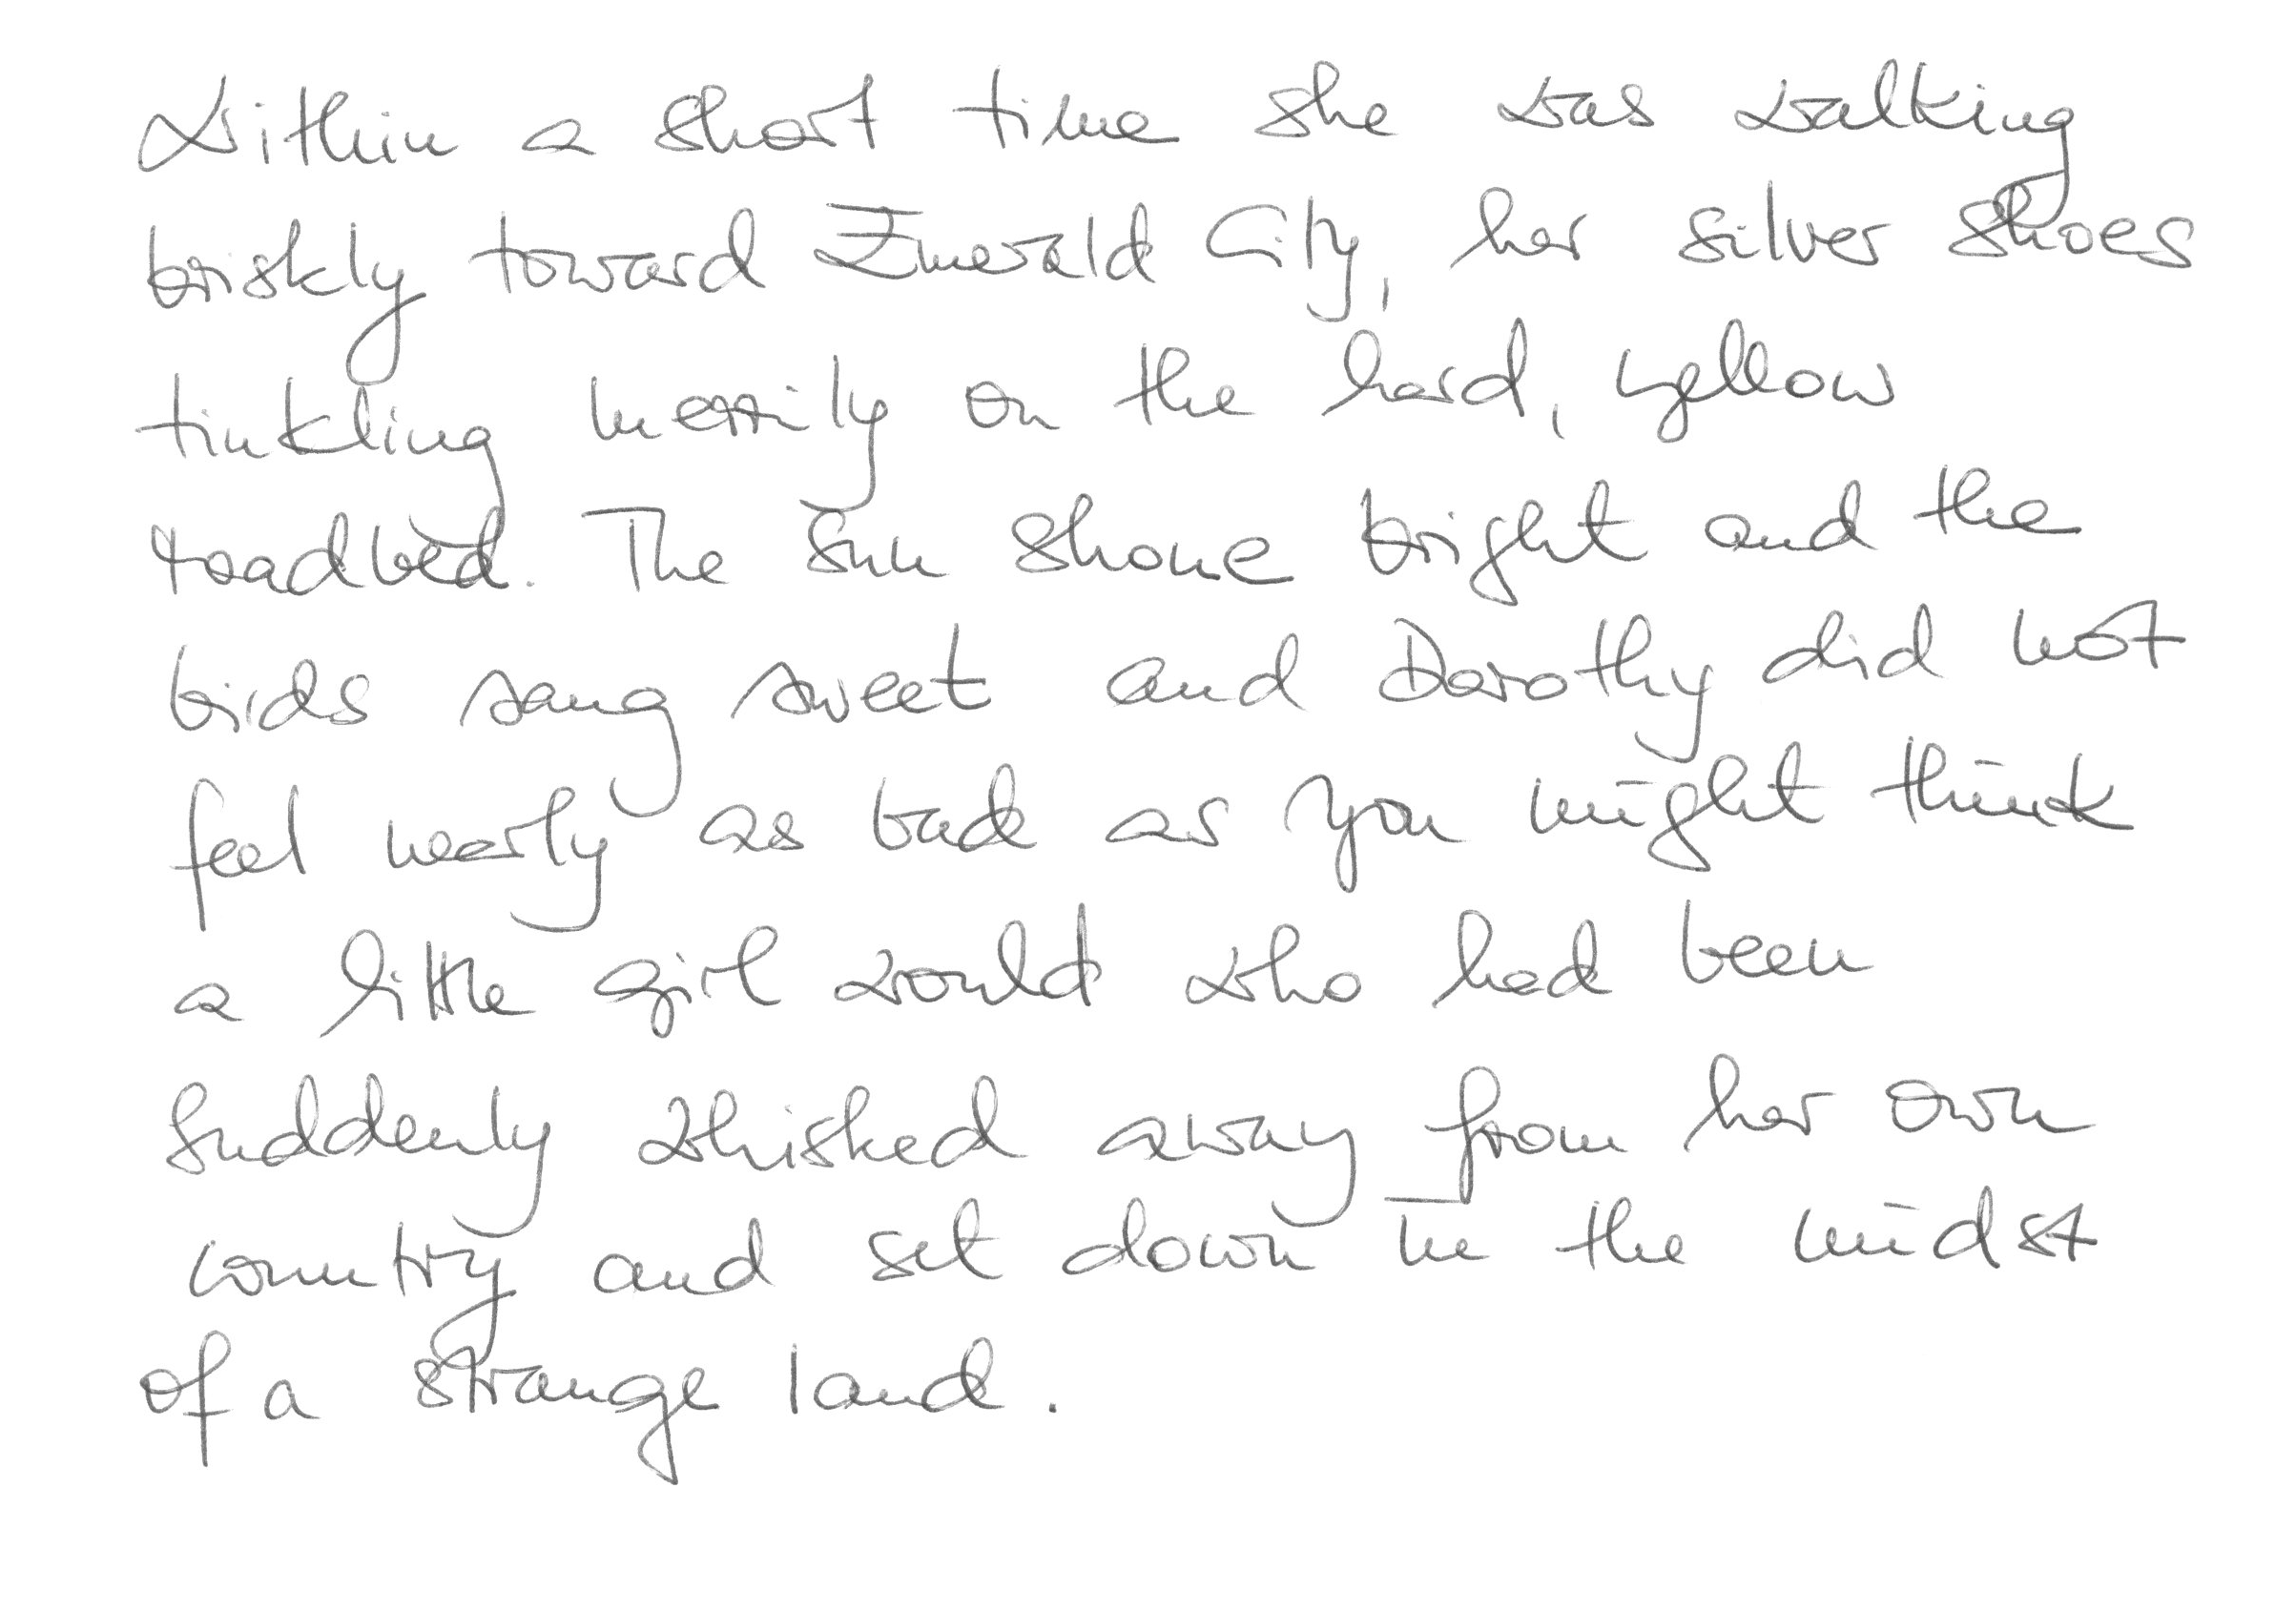 Within a short time she was walking
briskly toward Emerald City, her silver shoes
tinkling merrily on the hard, yellow
roadbed. The sun shone bright and the
birds sang sweet and Dorothy did not
feel nearly as bad as you might think
a little girl would who had been
suddenly whisked away from her own
country and set down in the midst
of a strange land.